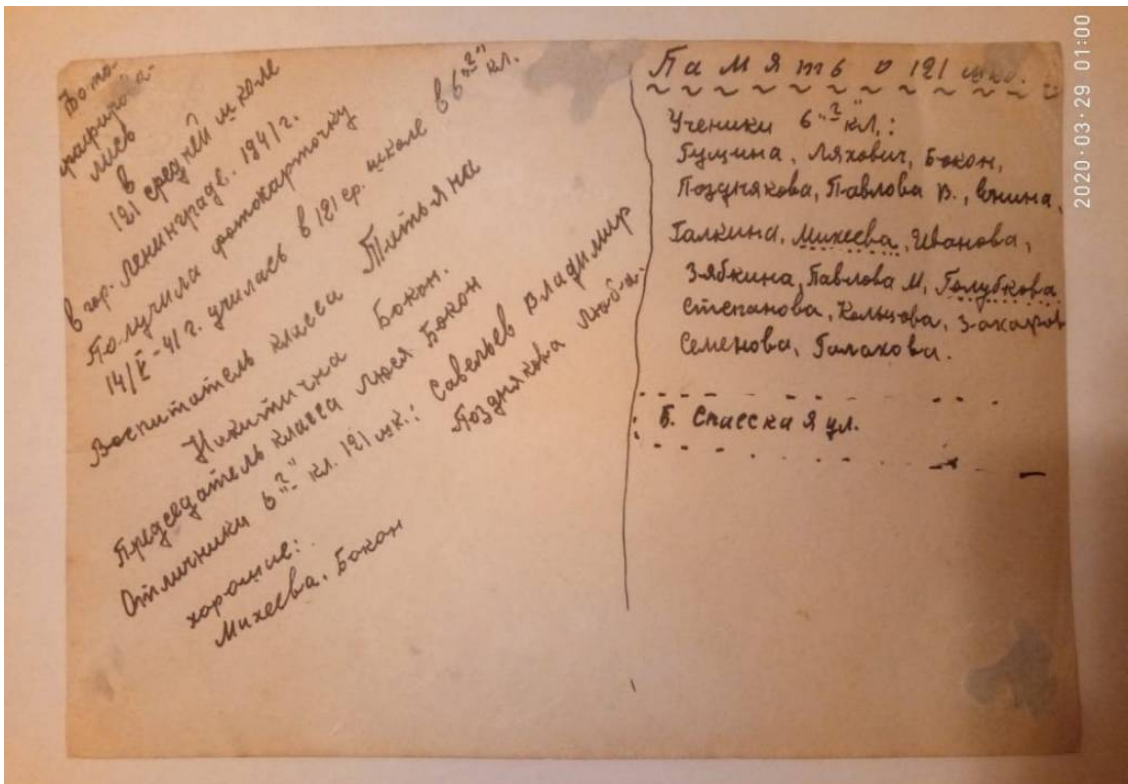 Фото-
графирова-
лись
в
121 средней школе
в гор. Ленинграде. 1941 г.
Получила фотокарточку
14/V-41 г. училась в 121 ср. школе в 6 "г" кл.
Воспитатель класса Татьяна
Никитична Бокон.
Председатель класса Люся Бокон
Отличники 6 "г" кл. 121 шк.: Савельев Владимир
Позднякова Люба.
хорошие:
Михеева, Бокон
Память о 121 шк.
Ученики 6 "г" кл.:
Гущина, Ляхович, Бокон,
Позднякова, Павлова В.,
Галкина, Михеева, Иванова,
Зябкина, Павлова М, Голубкова
Степанова, Кольцова, Захаров
Семенова, Галахова.
Б. Спасская ул.
2020-03-29 01:00